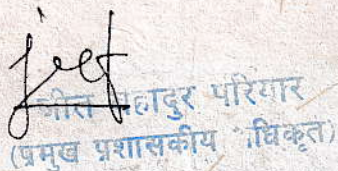 जीत बहादुर परियार
(प्रमुख प्रशासकीय अधिकृत)